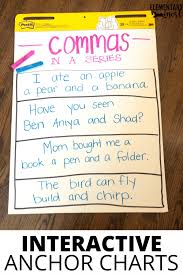 Post-it
ELEMENTARY
COMMAS
IN A SERIES
I ate an apple
a pear and a banana.
Have you seen
Ben Aniya and Shad?
Mom bought me a
book a pen and a folder.
The bird can fly
build and chirp.
INTERACTIVE
ANCHOR CHARTS